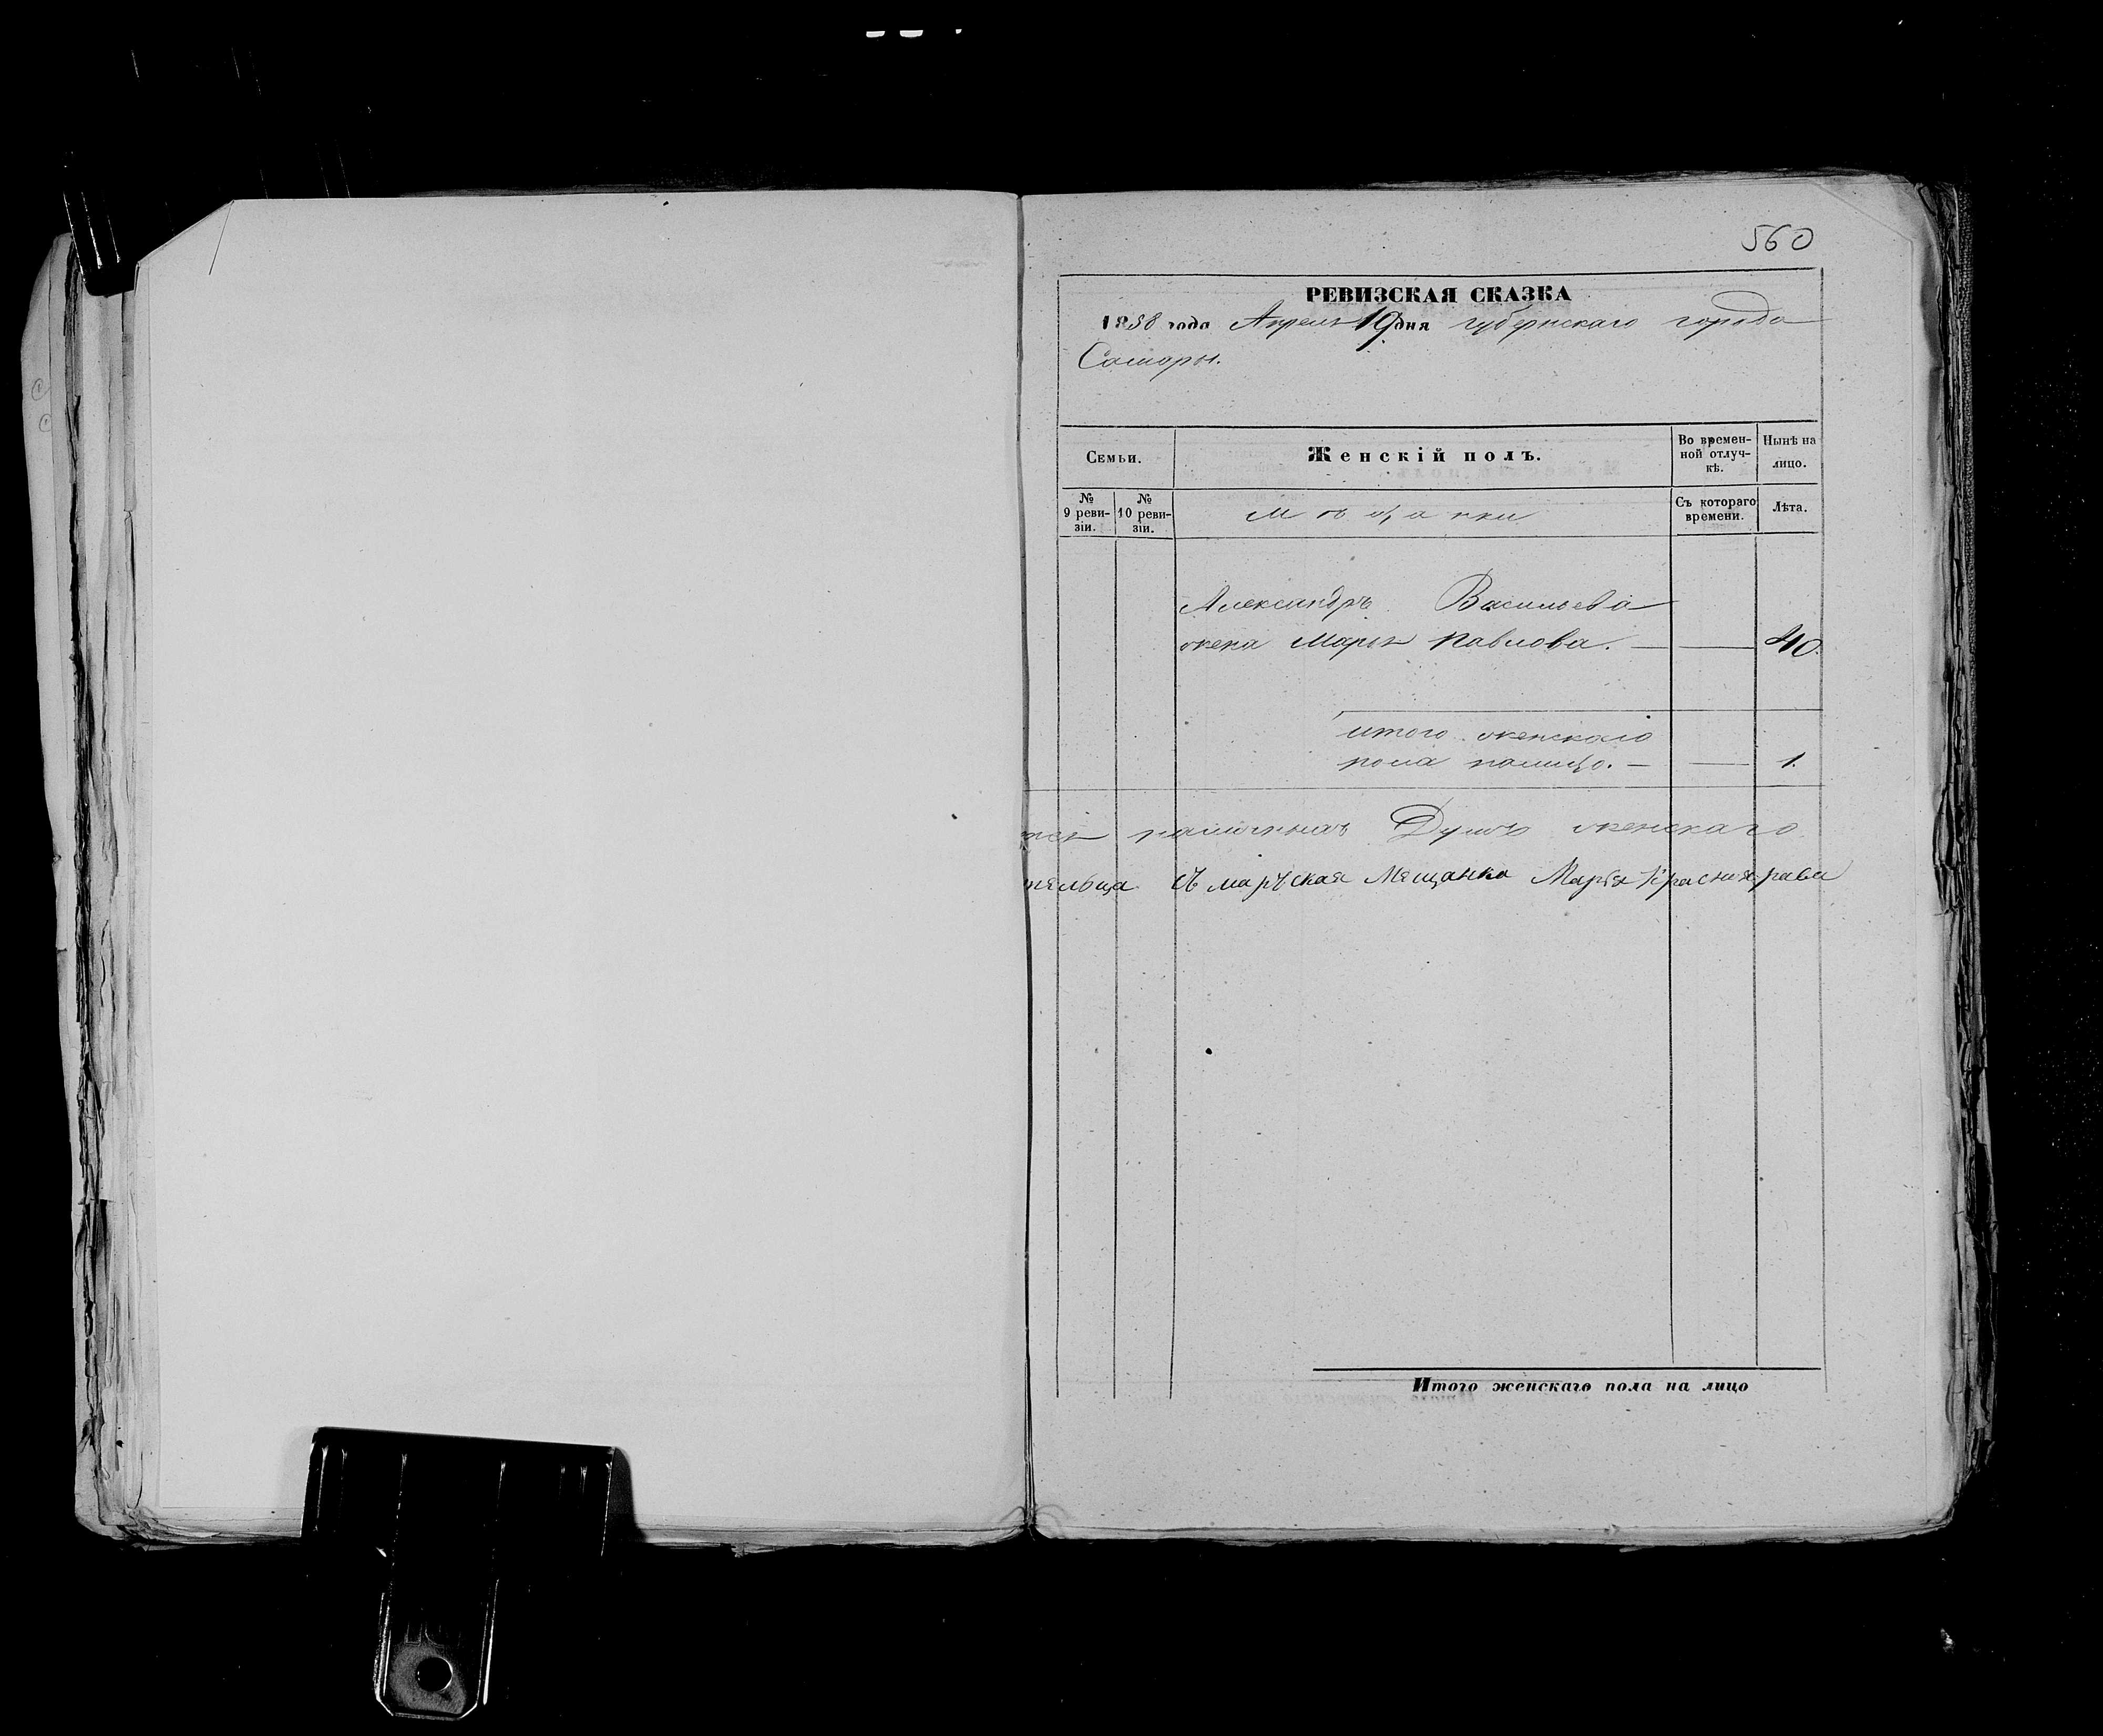 560
РЕВИЗСКАЯ СКАЗКА
1858 года Апреля 19 дня губернскаго города
Самары.
Семьи.
Женскій полъ.
Во времен-
ной отлуч-
кѣ.
Нынѣ на
лицо.
№
9 реви-
зіи.
№
10 реви-
зіи.
Мѣщанки
Съ котораго
времени.
Лѣта.
Александръ Васильева
жена Марья Павлова. — — 40.
итого женскаго
пола налицо. — — 1.
наличныхъ Душъ женскаго
Съмаръская Мещанка Марія
Итого женскаго пола на лицо